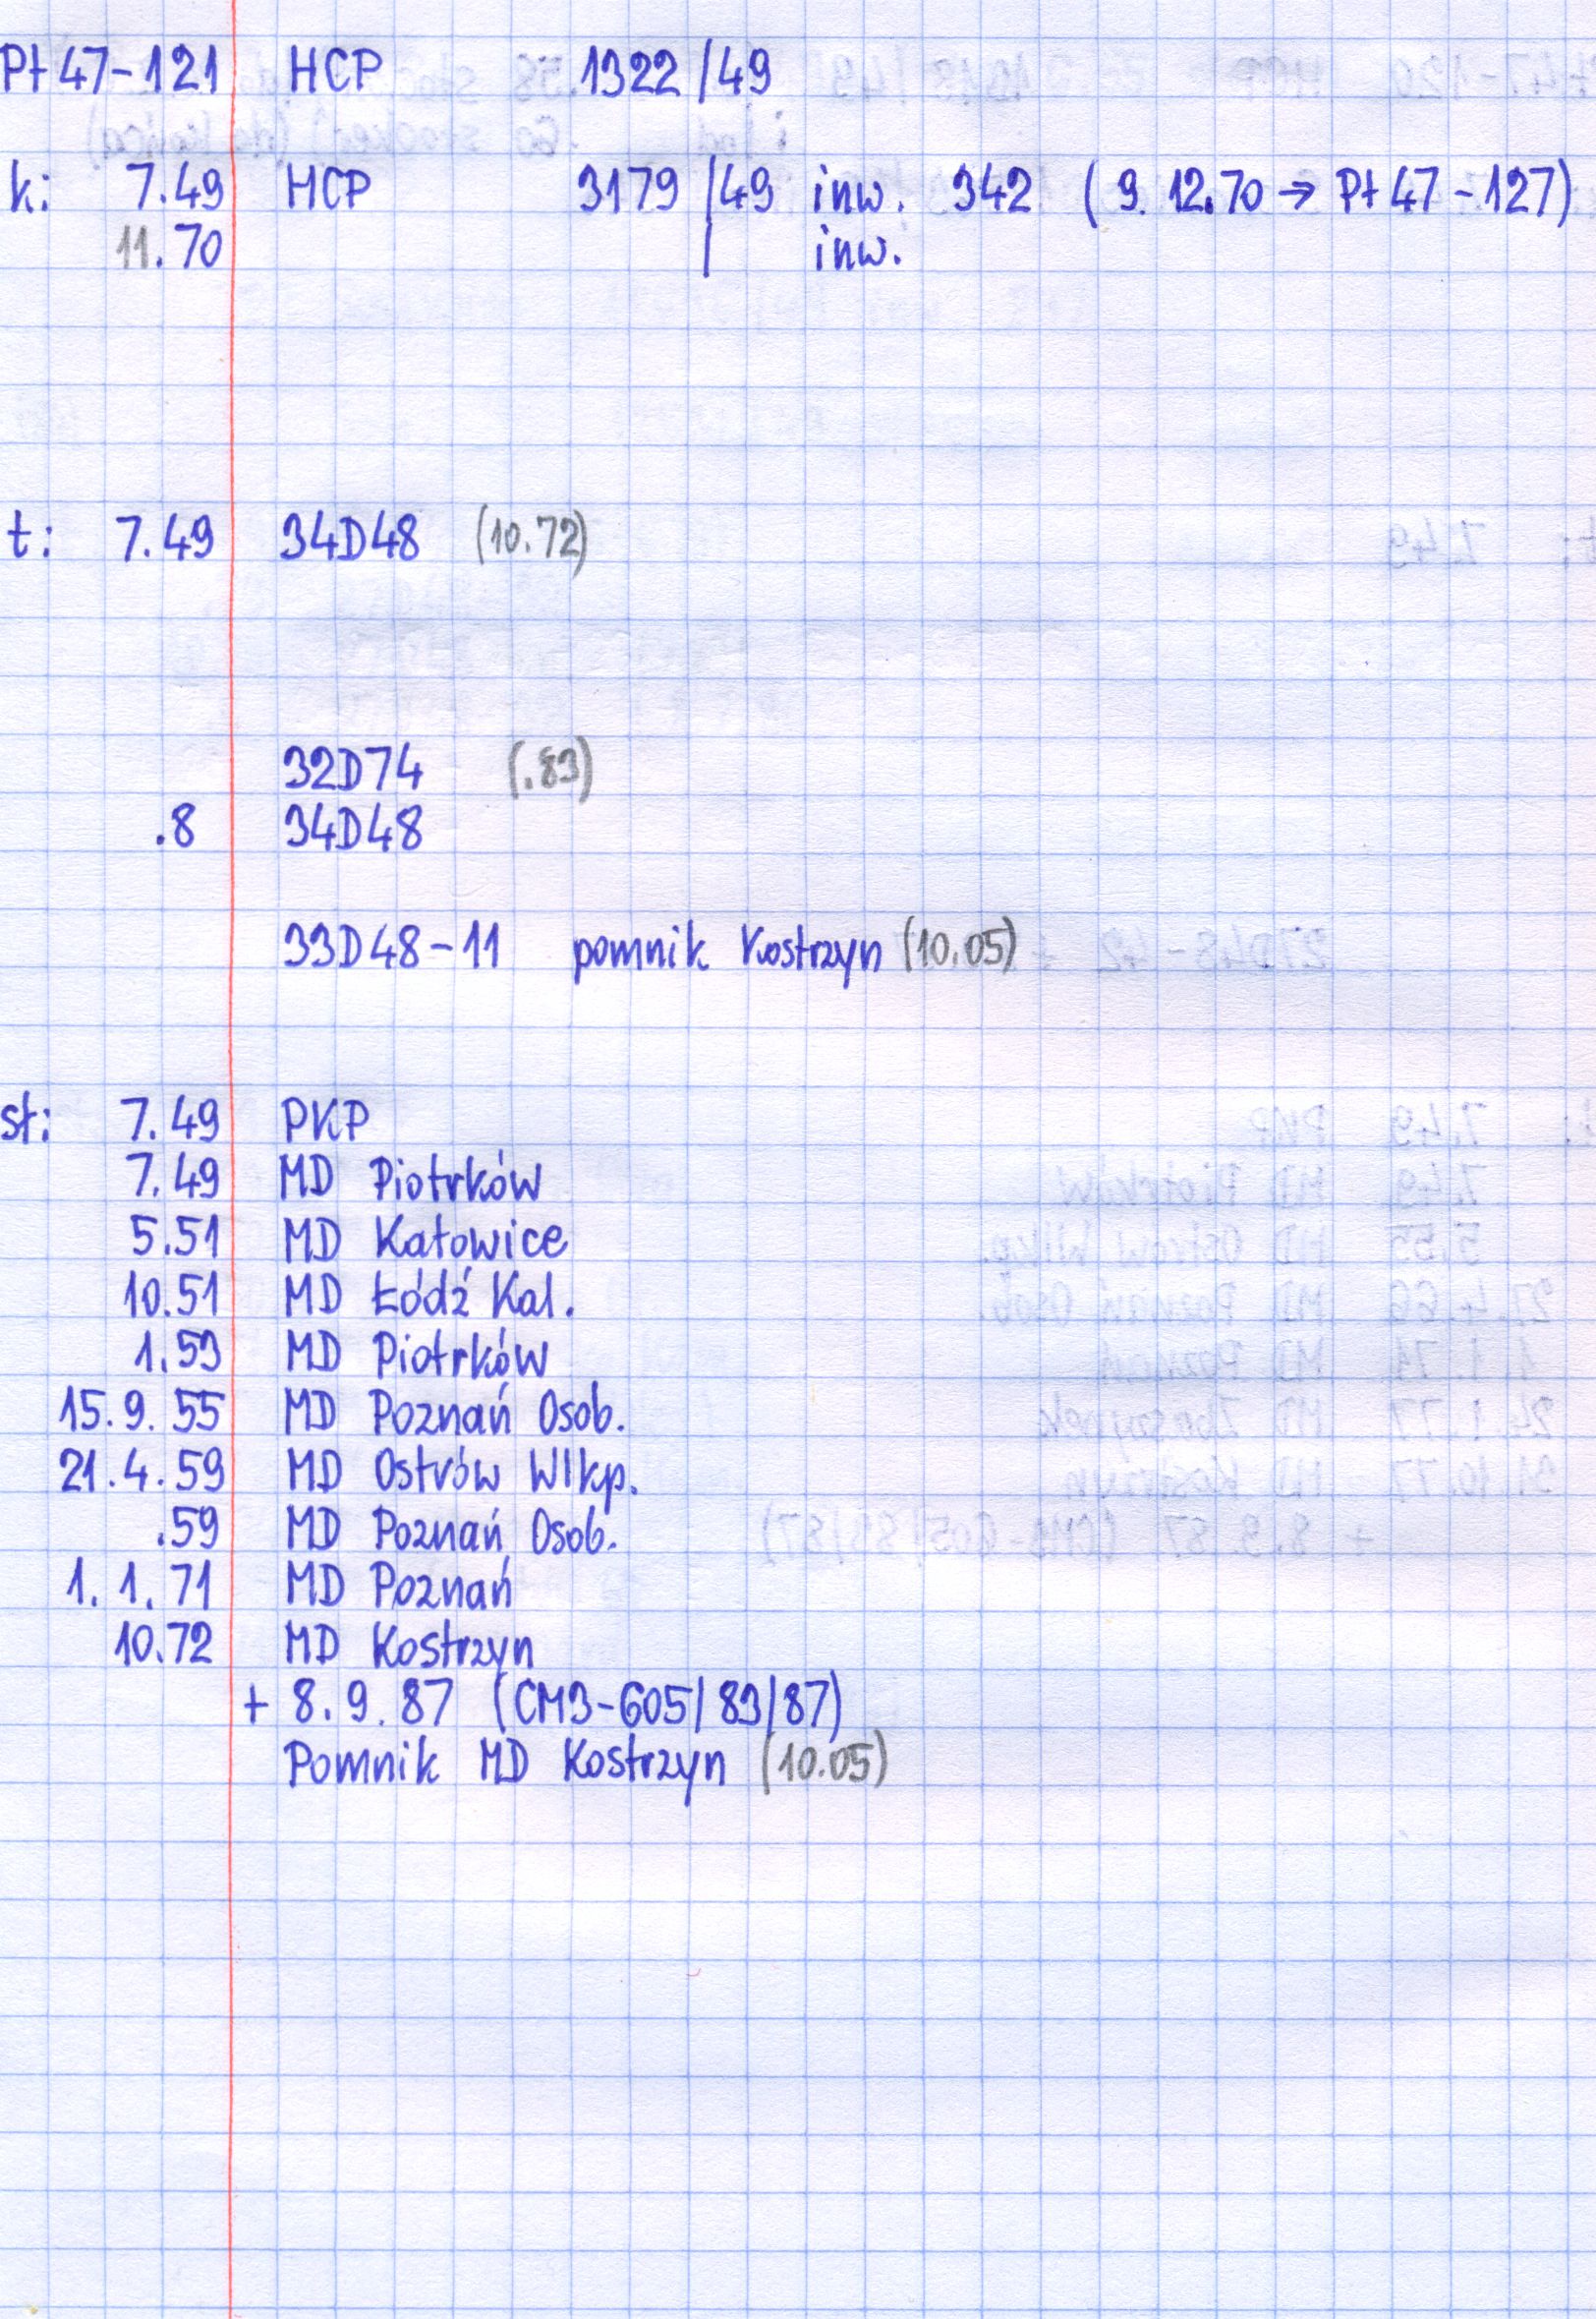 Pt 47-121 HCP 1322/49
k: 7.49 HCP 3179/49 inw. 342 (9.12.70 → Pt 47-127)
11.70 / inw.
t: 7.49 34D48 (10.72)
32D74 (.83)
.8 34D48
33D48-11 pomnik Kostrzyn (10.05)
st: 7.49 PKP
7.49 MD Piotrków
5.51 MD Katowice
10.51 MD Łódź Kal.
1.53 MD Piotrków
15.9.55 MD Poznań Osob.
21.4.59 MD Ostrów Wlkp.
.59 MD Poznań Osob.
1.1.71 MD Poznań
10.72 MD Kostrzyn
+ 8.9.87 (CM3-605/83/87)
Pomnik MD Kostrzyn (10.05)